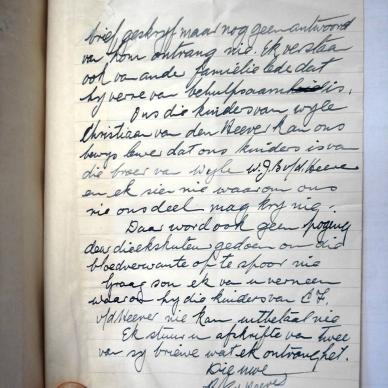 brief geskryf maar nog geen antwoord
van hom ontvang nie. Ek verstaan
ook van ander familie lede dat
hy verre van behulpsaam is.
Ons die kinders van wyle
Christiaan van den Heever kan ons
bewys lewer dat ons kinders is van
die broer van wyle W.J.B. v/d Heever
en ek sien nie waarom ons
nie ons deel mag kry nie.
Daar word ook geen poging
deur die eksekuteur gedoen om die
bloedverwante op te spoor nie
Graag sou ek van u verneem
waarom hy die kinders van C F.
v/d Heever nie kan uitbetaal nie
Ek stuur u afskrifte van twee
van sy briewe wat ek ontvang het.
Die uwe